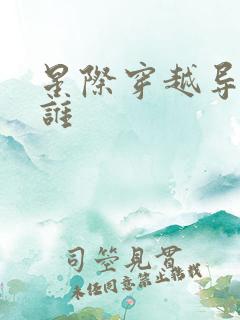 星際穿越导
誰
司空見貫
未经同意禁止转载